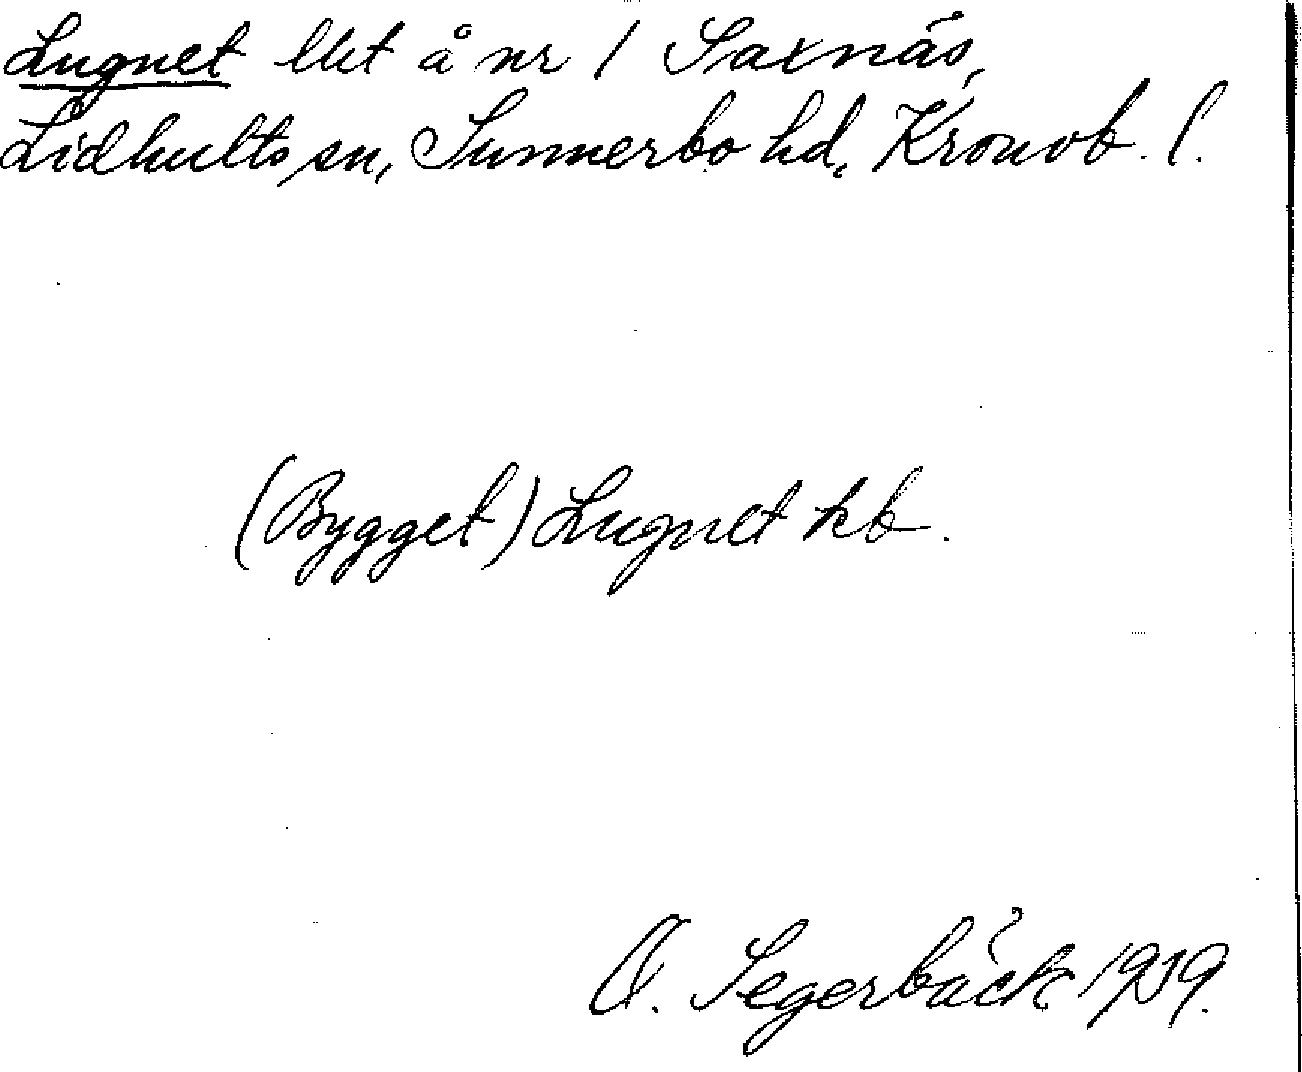 Lugnet lht å nr 1 Saxnäs,
Lidhults sn, Sunnerbo hd, Kronob. l.
(Bygget) Lugnet kb.
O. Segerbäck 1939.